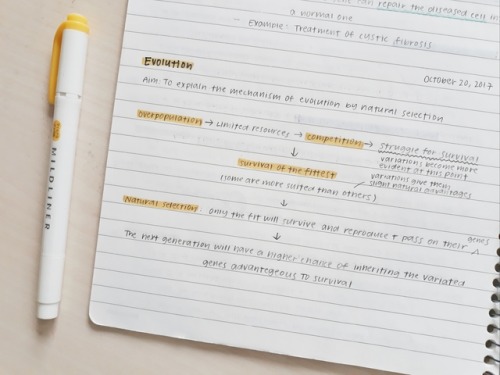 can repair the diseased cell in
a normal one
Example: Treatment of cystic fibrosis
Evolution
October 20, 2017
Aim: To explain the mechanism of evolution by natural selection
overpopulation → limited resources → competition → struggle for survival
variations become more
evident at this point
↓
survival of the fittest
variations give them
slight natural advantages
(some are more suited than others)
↓
Natural selection: only the fit will survive and reproduce + pass on their genes
↓
The next generation will have a higher chance of inheriting the variated
genes advantegeous to survival
MILDLINER